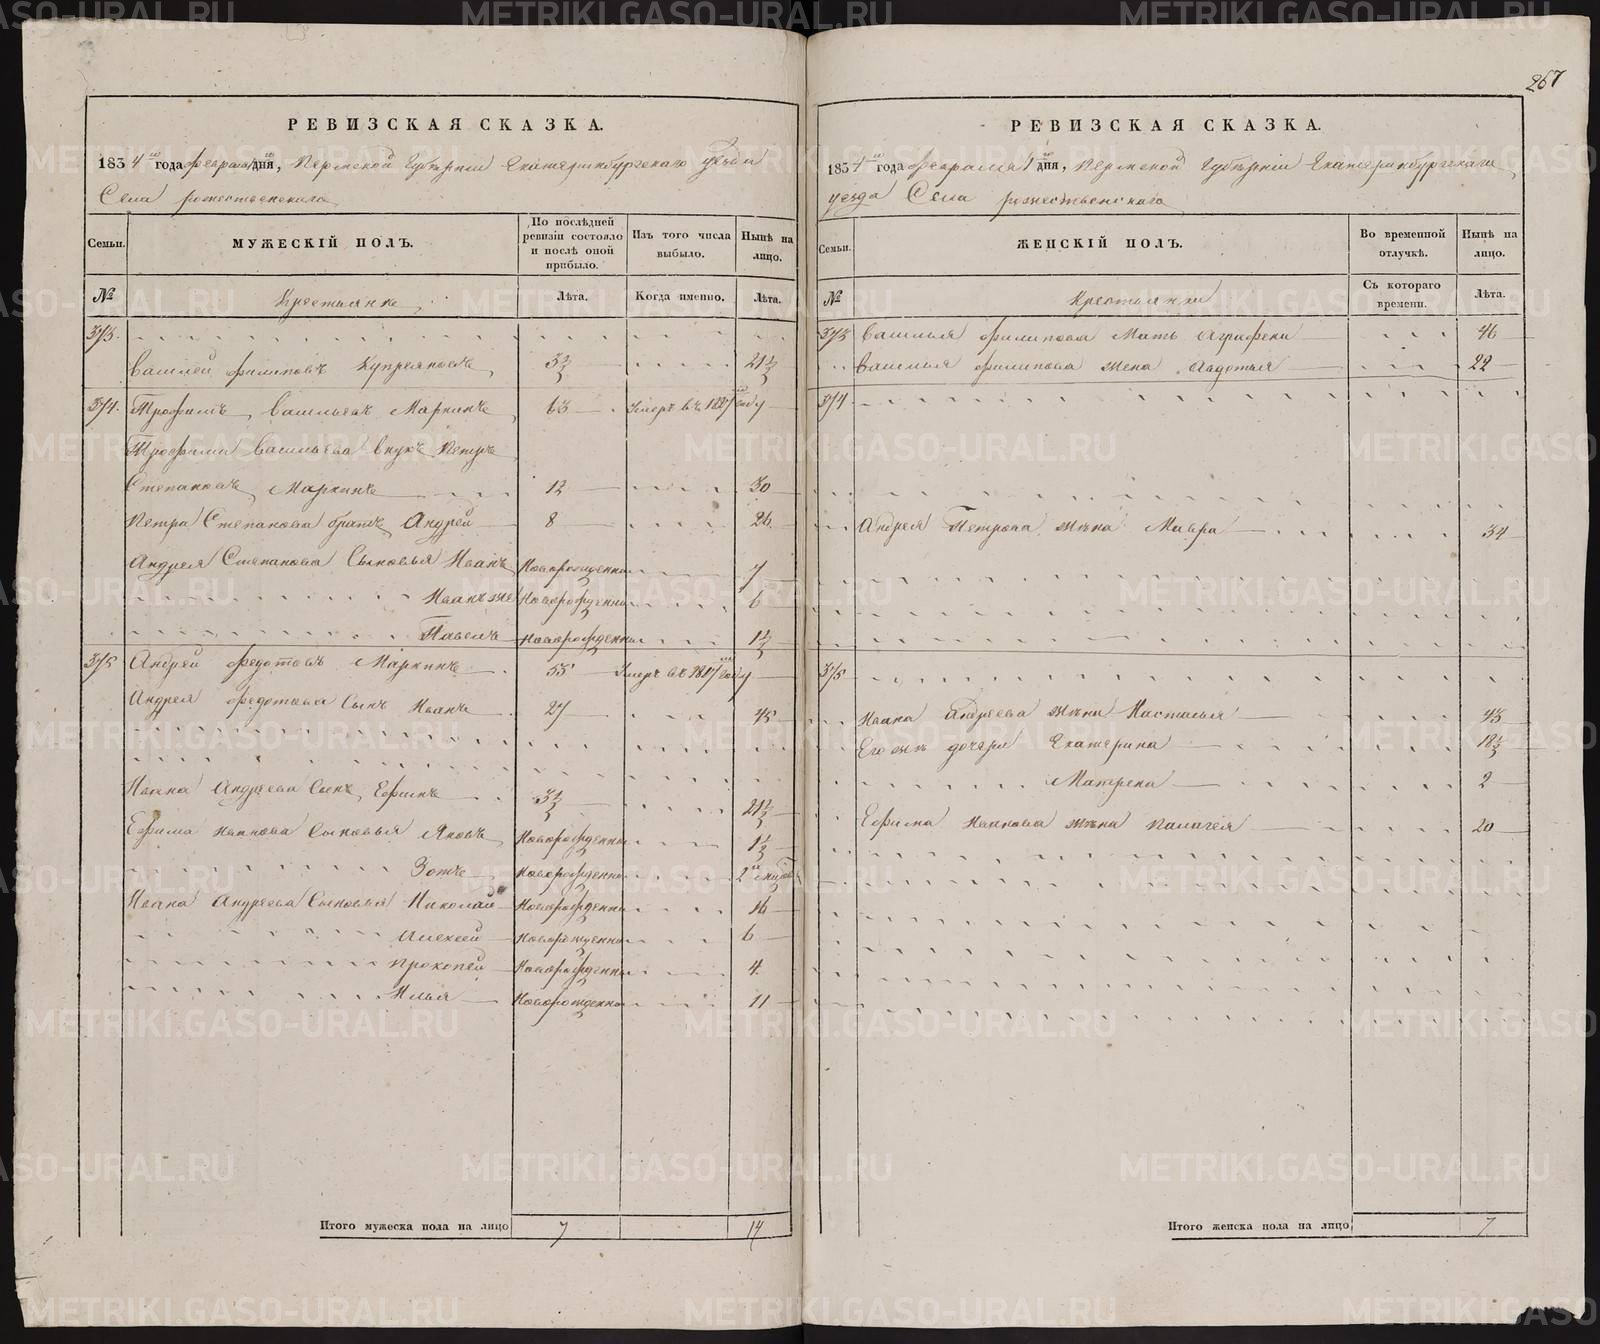 267
РЕВИЗСКАЯ СКАЗКА.
1834 го года февраля 1 го дня, Пермской Губерніи Екатеринбургскаго уезда
Села рожественскаго
Семьи.
МУЖЕСКІЙ ПОЛЪ.
По послѣдней ревизіи состояло и послѣ оной прибыло.
Изъ того числа выбыло.
Нынѣ на лицо.
№
Крестьяне
Лѣта.
Когда именно.
Лѣта.
373.
Василей филиповъ Купреяновъ 3½ 21½
374. Трофимъ Васильевъ Маркинъ 63 Умеръ въ 1827 году
Трофима Васильева внукъ Петръ
Степановъ Маркинъ 12 30
Петра Степанова братъ Андрей 8 26
Андрея Степанова Сыновья Иванъ Новорожденны 7
Иванъ же Новорожденны 6
Павелъ Новорожденны 1½
375 Андрей федотовъ Маркинъ 55 Умеръ въ 1817 году
Андрея федотова Сынъ Иванъ 27 45
Ивана Андреева Сынъ Ефимъ 3½ 21½
Ефима Иванова Сыновья Яковъ Новорожденны 1½
Зотъ Новорожденны 2
Ивана Андреева Сыновья Николай Новорожденны 16
Алексей Новорожденны 6
Прокопей Новорожденны 4
Илья Новорожденны 11
Итого мужеска пола на лицо 7 14
РЕВИЗСКАЯ СКАЗКА.
1834 го года февраля 1 го дня, Пермской Губерніи Екатеринбургскаго
уезда Села рожественскаго
Семьи.
ЖЕНСКІЙ ПОЛЪ.
Во временной отлучкѣ.
Нынѣ на лицо.
№
Крестьянки
Съ котораго времени.
Лѣта.
373 Василья филипова Мать Аграфена 46
Василья филипова жена Авдотья 22
374
Андрея Петрова жена Мавра 34
375
Ивана Андреева жена Настасья 43
Его жъ дочери Екатерина 18½
Матрена 2
Ефима Иванова жена Палагея 20
Итого женска пола на лицо 7
METRIKI.GASO-URAL.RU